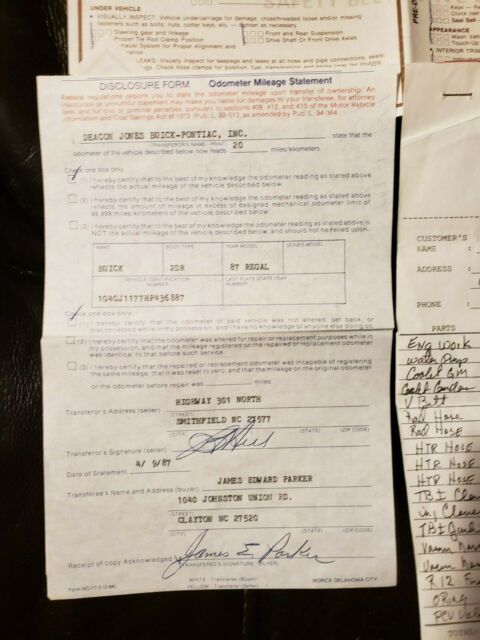 SAFETY BEL
UNDER VEHICLE
VISUALLY INSPECT: Vehicle undercarriage for damage, crossthreaded loose and/or missing
fasteners such as bolts, nuts, cotter keys, etc. — tighten as necessary.
Steering gear and Linkage
Front and Rear Suspension
Proper Tie Rod Clamp Position
Drive Shaft Or Front Drive Axles
Travel System for Proper Alignment and
LEAKS: Visually inspect for
Check hose clamps for position,
PRE-D
Keys
Clock
Seat
APPEARANCE
Wash
Touch-Up
INTERIOR TRIM
DISCLOSURE FORM Odometer Mileage Statement
Federal regulations require you to state the odometer mileage upon transfer of ownership. An
inaccurate or untruthful statement may make you liable for damages to your transferee, for attorney
fees, and for civil or criminal penalties, pursuant to sections 409, 412, and 413 of the Motor Vehicle
Information and Cost Savings Act of 1972 (Pub. L. 92-513, as amended by Pub. L. 94-364.
DEACON JONES BUICK-PONTIAC, INC. state that the
(TRANSFEROR'S NAME - PRINT)
odometer of the vehicle described below now reads 20 miles/kilometers.
Check one box only.
(1) I hereby certify that to the best of my knowledge the odometer reading as stated above
reflects the actual mileage of the vehicle described below.
(2) I hereby certify that to the best of my knowledge the odometer reading as stated above
reflects the amount of mileage in excess of designed mechanical odometer limit of
99,999 miles/kilometers of the vehicle described below.
(3) I hereby certify that to the best of my knowledge the odometer reading as stated above is
NOT the actual mileage of the vehicle described below, and should not be relied upon.
MAKE BODY TYPE YEAR MODEL SERIES MODEL
BUICK 2DR 87 REGAL
VEHICLE IDENTIFICATION NUMBER LAST PLATE STATE YEAR NUMBER
1G4GJ1177HP436887
Check one box only.
(1) I hereby certify that the odometer of said vehicle was not altered, set back, or
disconnected while in my possession, and I have no knowledge of anyone else doing so.
(2) I hereby certify that the odometer was altered for repair or replacement purposes while in
my possession, and that the mileage registered on the repaired or replacement odometer
was identical to that before such service.
(3) I hereby certify that the repaired or replacement odometer was incapable of registering
the same mileage, that it was reset to zero, and that the mileage on the original odometer
or the odometer before repair was miles.
HIGHWAY 301 NORTH
Transferor's Address (seller)
(STREET)
SMITHFIELD NC 27577
(CITY) (STATE) (ZIP CODE)
Transferor's Signature (seller)
4/ 9/87
Date of Statement
JAMES EDWARD PARKER
Transferee's Name and Address (buyer)
1040 JOHNSTON UNION RD.
(STREET)
CLAYTON NC 27520
(CITY) (STATE) (ZIP CODE)
James E Parker
Receipt of copy Acknowledged
(TRANSFEREE'S SIGNATURE - BUYER)
WHITE - Transferee (Buyer)
YELLOW - Transferor (Seller)
NORICK OKLAHOMA CITY
CUSTOMER'S
NAME :
ADDRESS :
PHONE :
PARTS
Eng Work
Water Pump
V Belt
Rad Hose
Rad Hose
HTR Hose
HTR Hose
HTR Hose
TBI
TBI
R12
O Ring
PCV